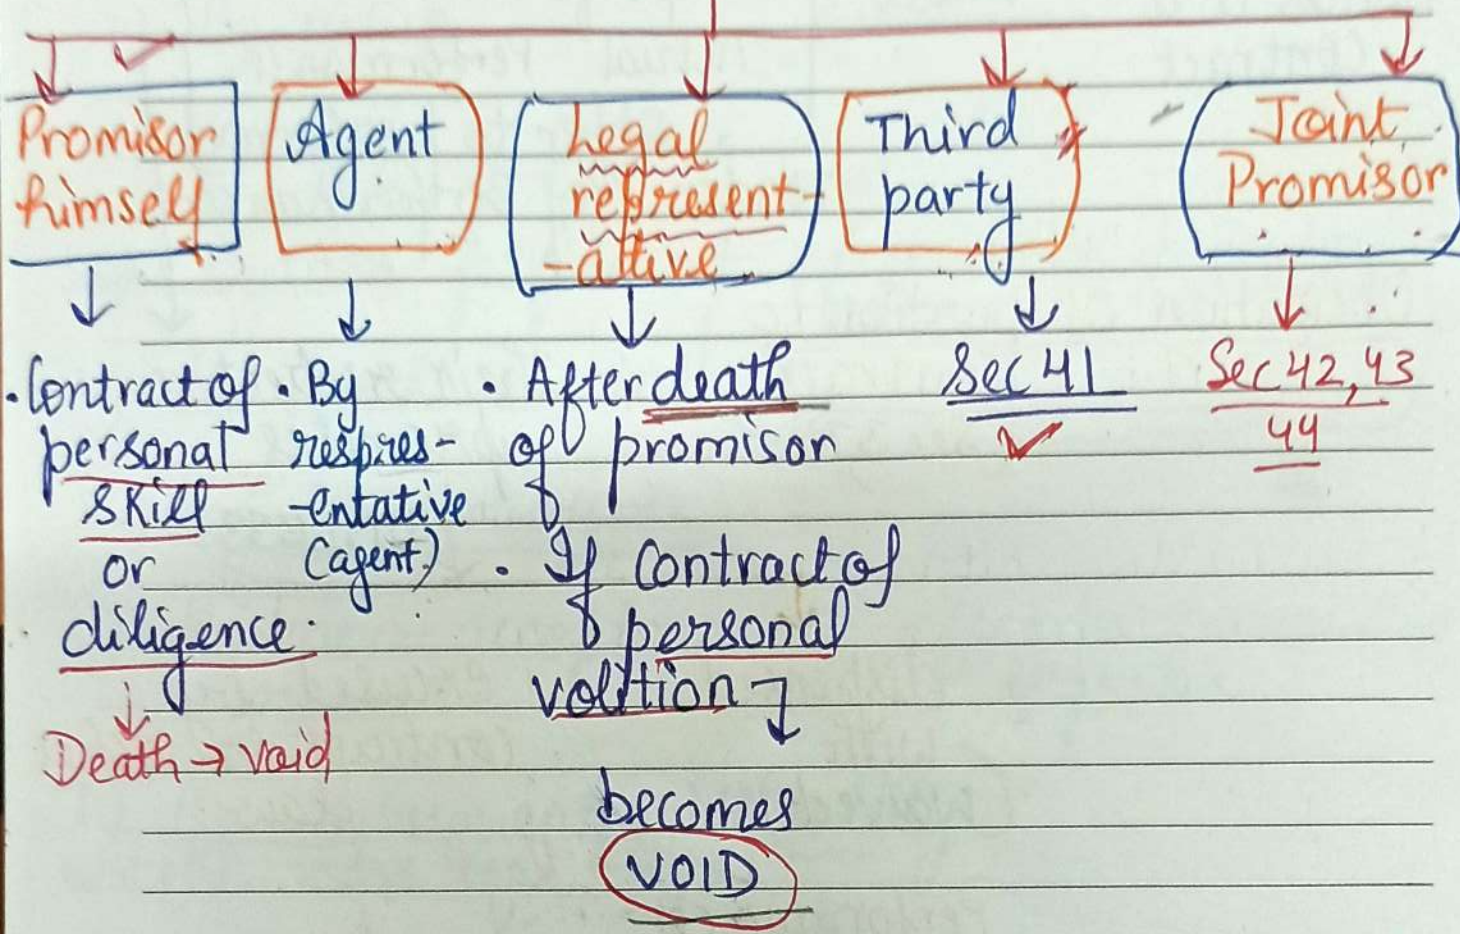 Promisor
himself
Agent
Legal
represent-
-ative
Third
party
Joint
Promisor
. Contract of
personal
skill
or
diligence.
Death → void
. By
respres-
-entative
(agent)
. After death
of promisor
. If contract of
personal
volition
becomes
VOID
Sec 41
Sec 42, 43
44